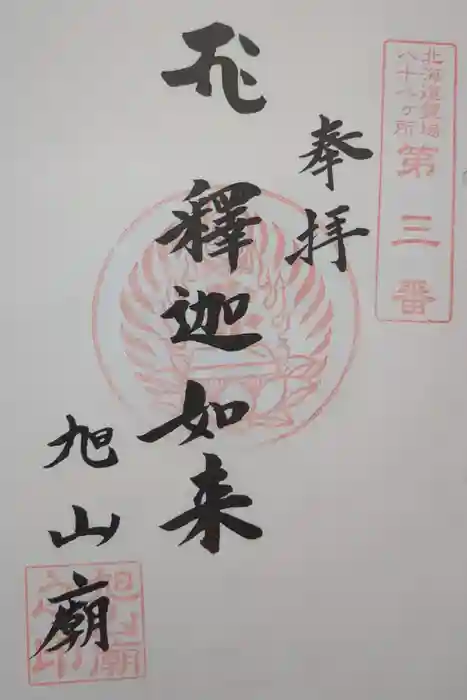 北海道霊場
八十八ヶ所
第三番
奉拝
釋迦如来
旭山廟
旭山廟之印